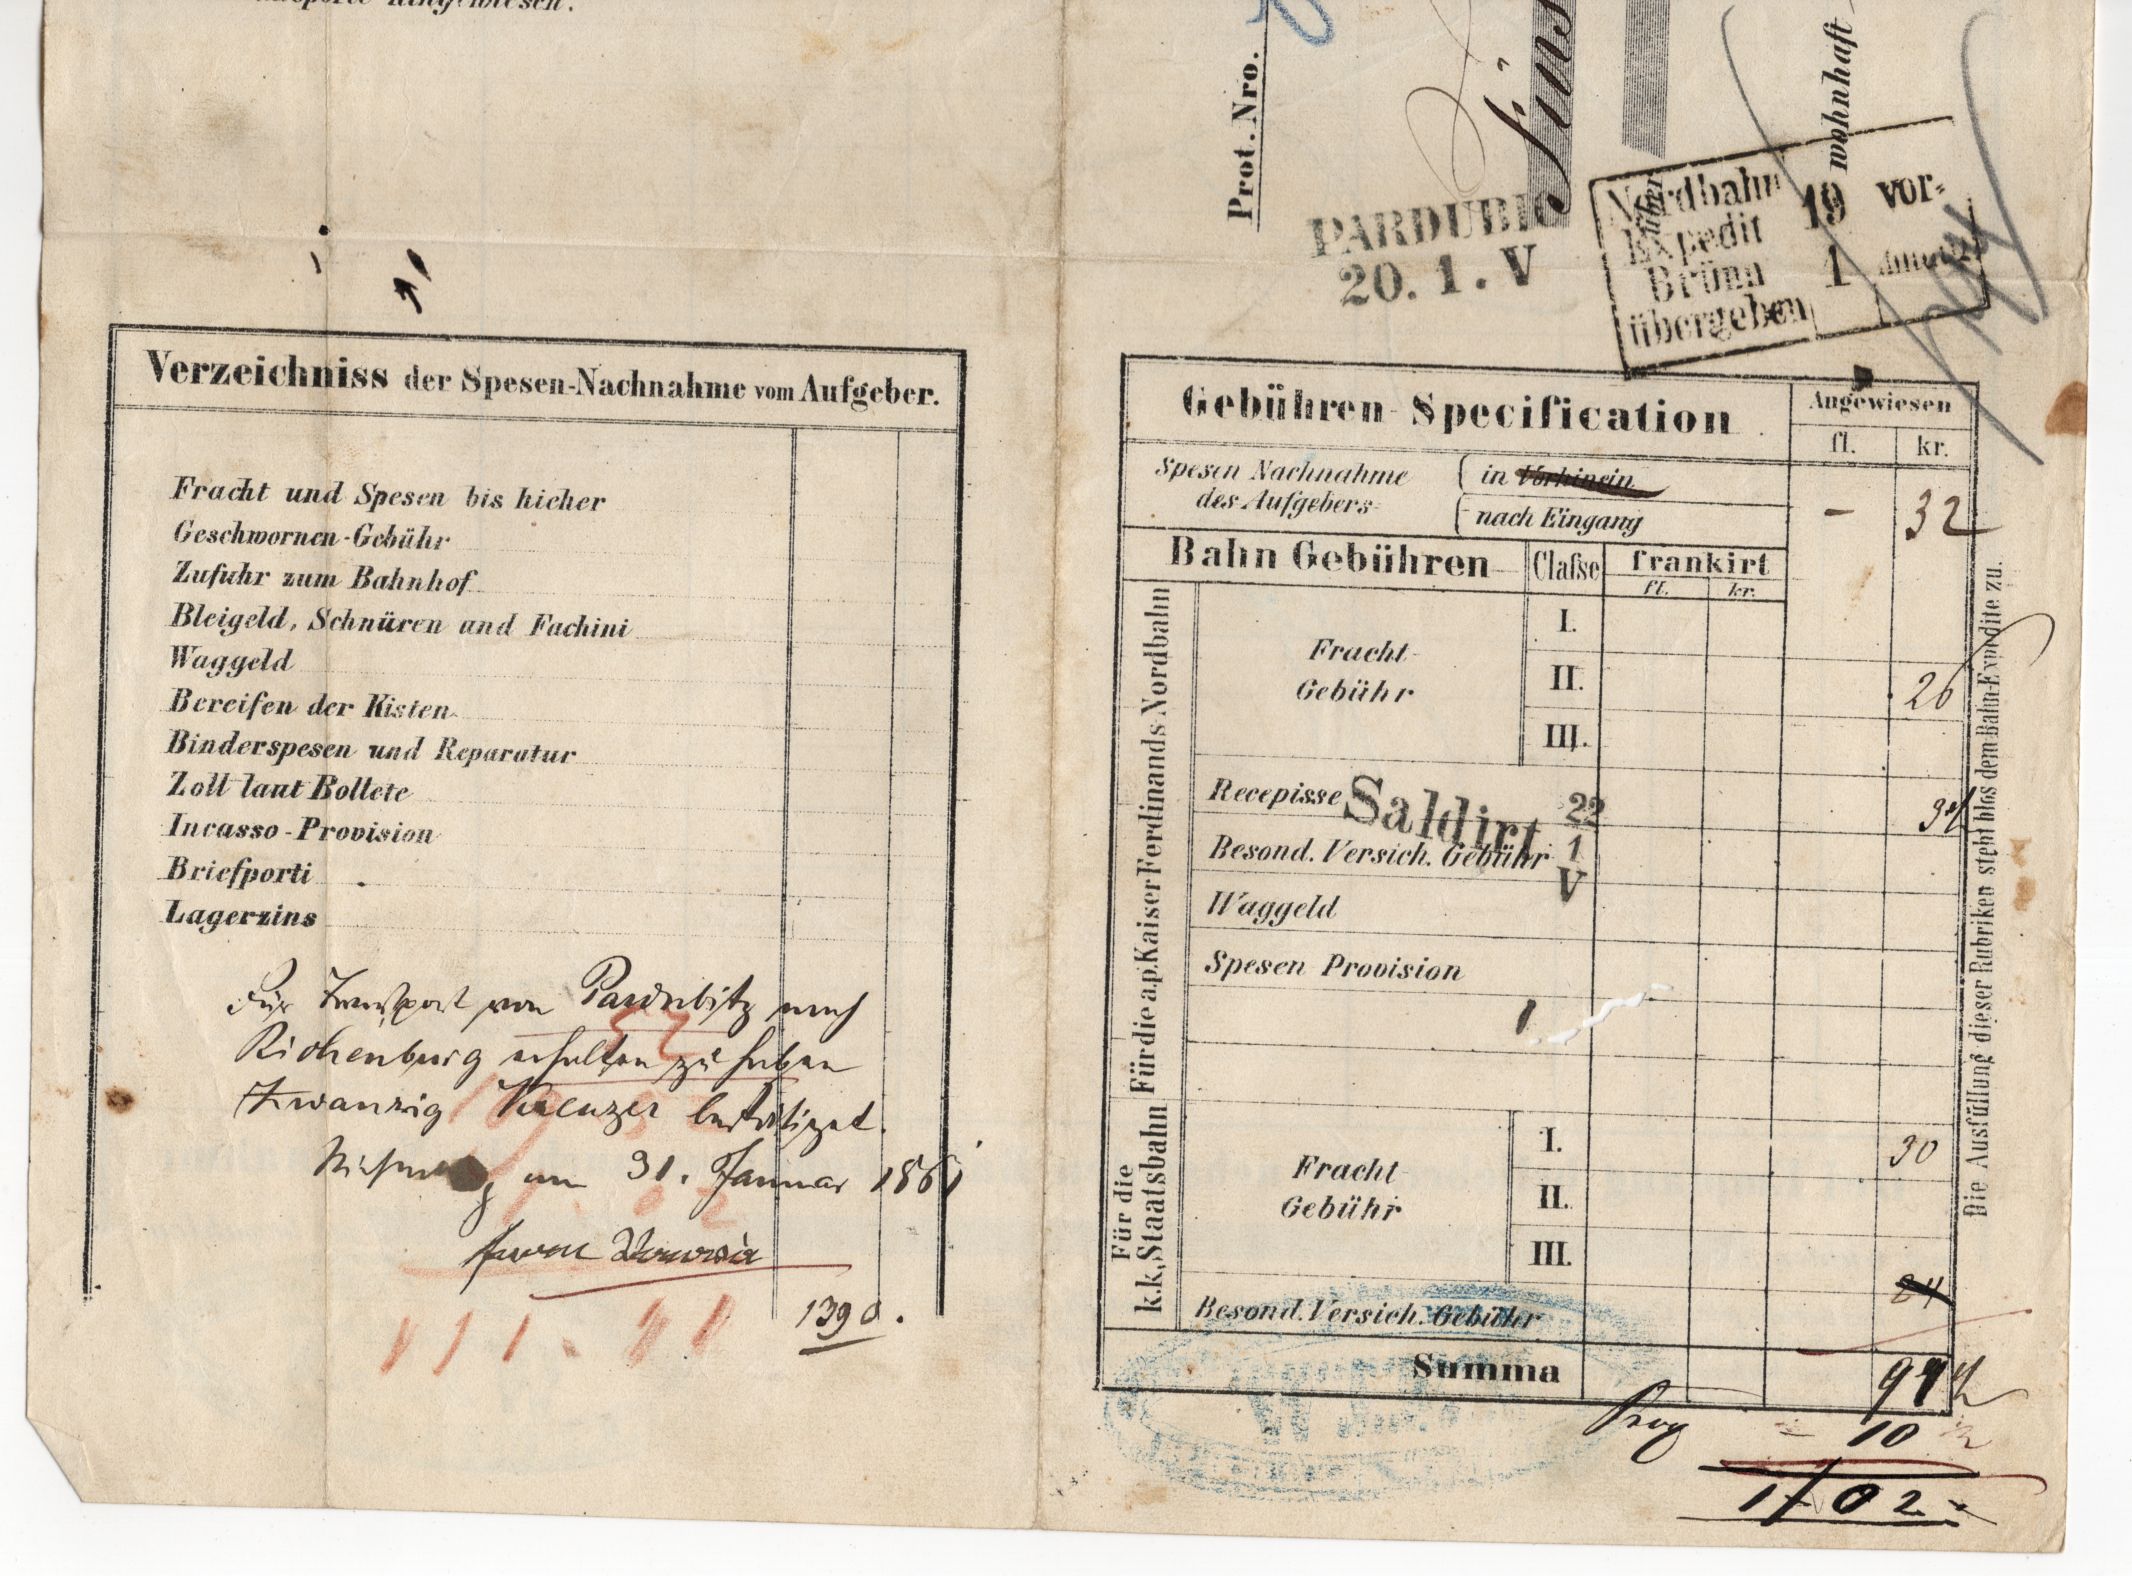 Prot. Nro.
wohnhaft
über
PARDUBIC
20. 1. V
Nordbahn
Expedit
Brünn
übergeben
19 vor-
1
Verzeichniss der Spesen-Nachnahme vom Aufgeber.
Fracht und Spesen bis hieher
Geschwornen-Gebühr
Zufuhr zum Bahnhof
Bleigeld, Schnüren und Fachini
Waggeld
Bereifen der Kisten
Binderspesen und Reparatur
Zoll laut Bollete
Incasso-Provision
Briefporti
Lagerzins
Für Transport von Pardubitz nach
Richenburg erhalten zu haben
Zwanzig Kreuzer bestätiget.
am 31. Januar 1861
1390.
Gebühren-Specification
Angewiesen
fl. kr.
Spesen Nachnahme
des Aufgebers
in Vorhinein
nach Eingang
- 32
Bahn Gebühren Classe frankirt
fl. kr.
Für die a.p. Kaiser Ferdinands Nordbahn
Fracht
Gebühr
I.
II. 26
III.
Recepisse
Saldirt 22
1
V
Besond. Versich. Gebühr
Waggeld
Spesen Provision
Für die
k.k. Staatsbahn
Fracht
Gebühr
I. 30
II.
III.
Besond. Versich. Gebühr
Summa
10
1/02
Die Ausfüllung dieser Rubriken steht blos dem Bahn-Expedite zu.